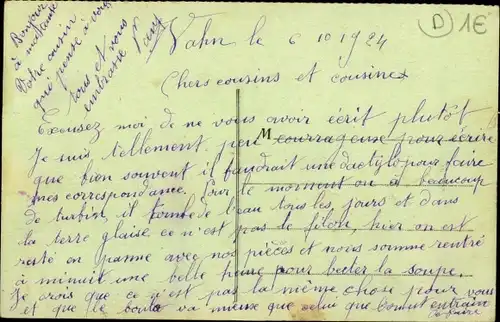 Bonjour
à mes tantes
Votre cousin
qui pense à vous
tous et vous
embrasse
D 1€
Vahn le 6 10 1924
Chers cousins et cousines
Excusez moi de ne vous avoir écrit plutôt
Je suis tellement peu courrageux pour écrire
que bien souvent il faudrait une dactylo pour faire
mes correspondance. Pour le moment on a beaucoup
de turbin, il tombe de l'eau tous les jours et dans
la terre glaise ce n'est pas le filon, hier on est
resté en panne avec nos pièces et nous somme rentré
à minuit une belle heure pour becter la soupe.
Je crois que ce n'est pas la même chose pour vous
et que le boulo va mieux que celui que